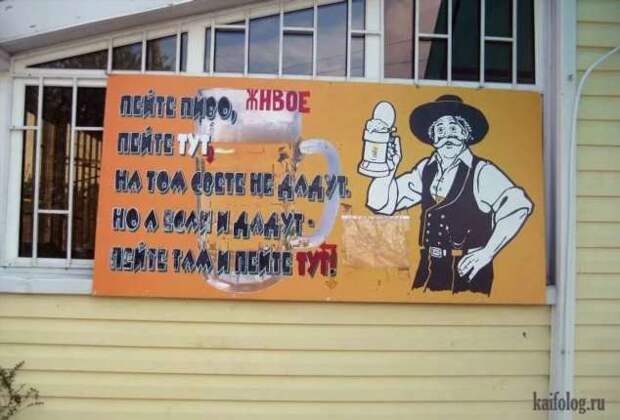 ПЕЙТЕ ПИВО, ЖИВОЕ
ПЕЙТЕ ТУТ,
НА ТОМ СВЕТЕ НЕ ДАДУТ.
НО А ЕСЛИ И ДАДУТ -
ПЕЙТЕ ТАМ И ПЕЙТЕ ТУТ!
kaifolog.ru